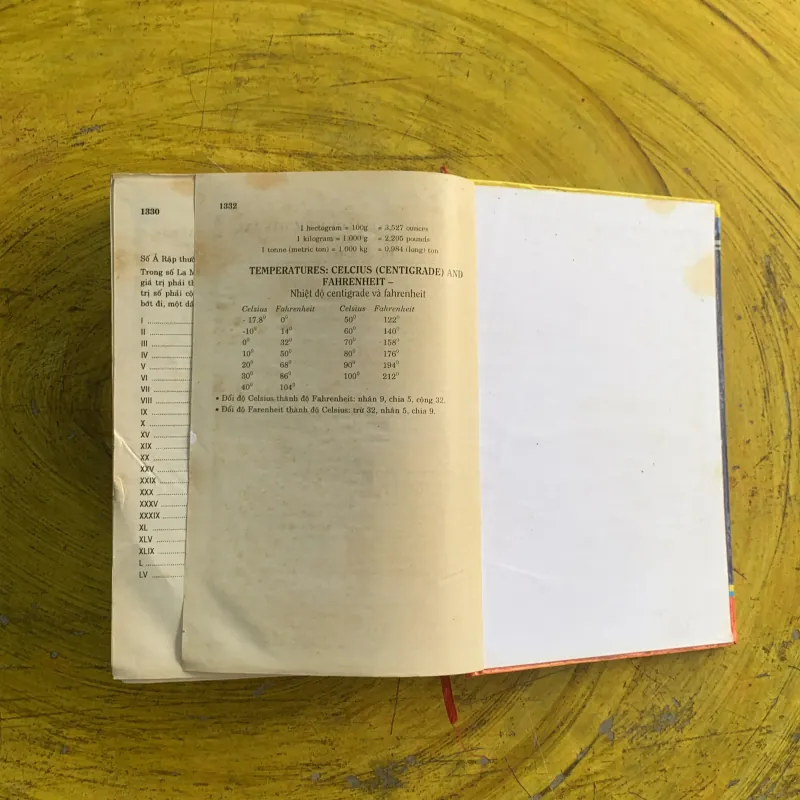 1330
Số Ả Rập thườ
Trong số La M
giá trị phải th
trị số phải cộ
bớt đi, một dấ
I
II
III
IV
V
VI
VII
VIII
IX
X
XV
XIX
XX
XXV
XXIX
XXX
XXXV
XXXIX
XL
XLV
XLIX
L
LV
1332
1 hectogram = 100g = 3,527 ounces
1 kilogram = 1.000 g = 2.205 pounds
1 tonne (metric ton) = 1.000 kg = 0.984 (long) ton
TEMPERATURES: CELCIUS (CENTIGRADE) AND
FAHRENHEIT –
Nhiệt độ centigrade và fahrenheit
Celsius Fahrenheit Celsius Fahrenheit
- 17.8⁰ 0⁰ 50⁰ 122⁰
-10⁰ 14⁰ 60⁰ 140⁰
0⁰ 32⁰ 70⁰ 158⁰
10⁰ 50⁰ 80⁰ 176⁰
20⁰ 68⁰ 90⁰ 194⁰
30⁰ 86⁰ 100⁰ 212⁰
40⁰ 104⁰
• Đổi độ Celsius thành độ Fahrenheit: nhân 9, chia 5, cộng 32.
• Đổi độ Farenheit thành độ Celsius: trừ 32, nhân 5, chia 9.